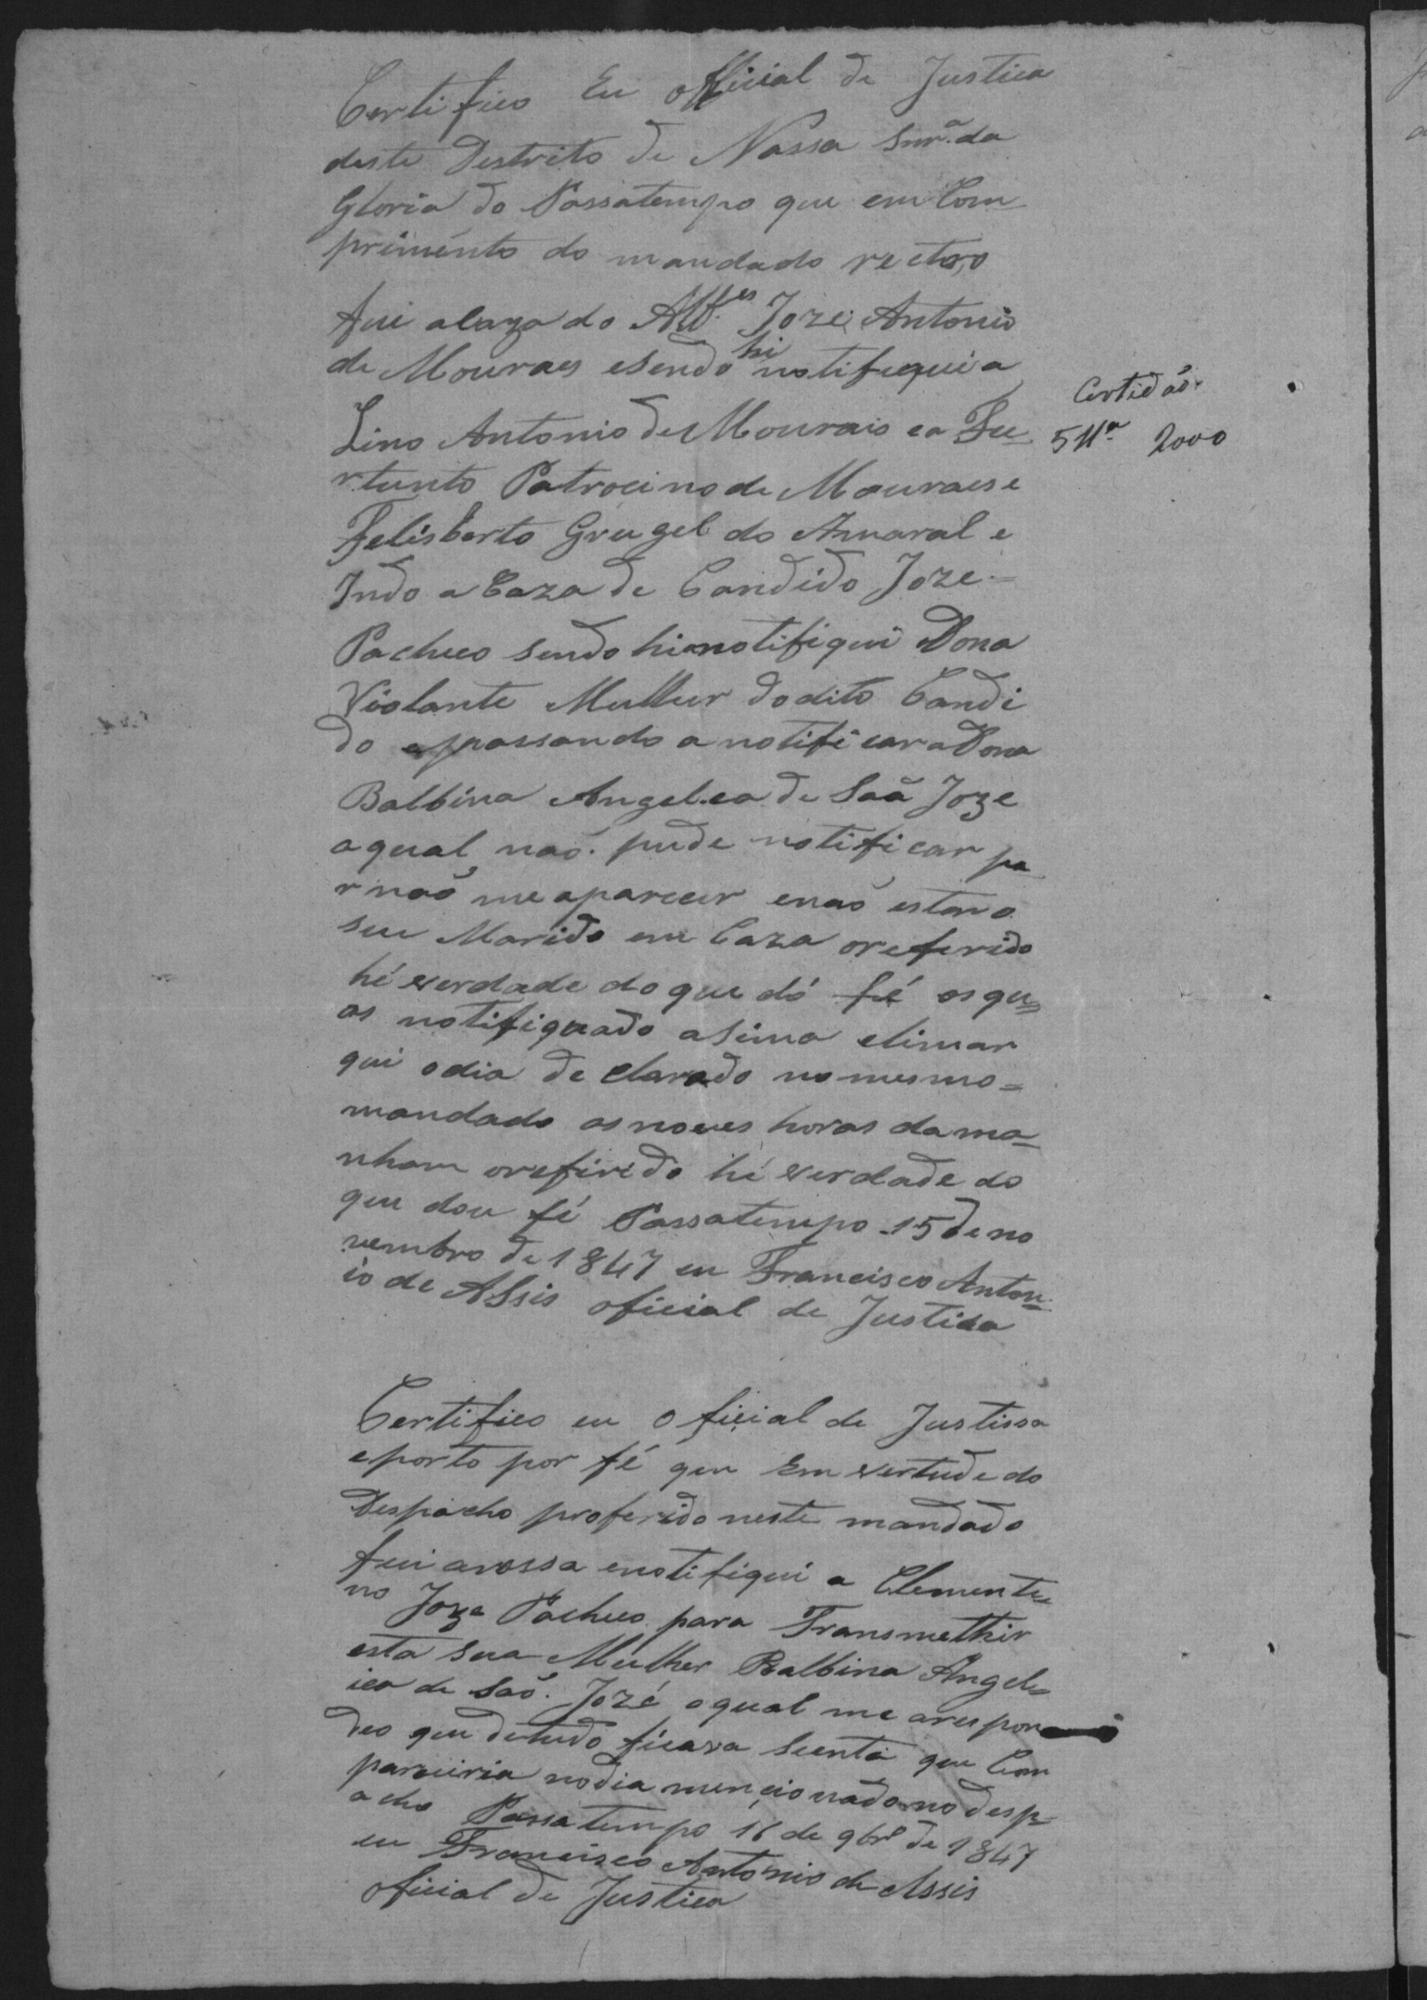 Certifico Eu official de Justica
deste Destrito de Nossa Snrª. da
Gloria do Passatempo que em Com
primento do mandado rectro
fui a caza do Alf.es Joze Antonio
de Mouraes e sendo hi notifiquei a
Lino Antonio de Mourais e a Fu-
rtunto Patrocino de Mouraes e
Felisberto Gregel do Amaral e
Indo a Caza de Candido Joze=
Pacheco sendo hi notifiquei Dona
Violante Mulher do dito Candi
do e passando a notificar a Dona
Balbina Angelica de Saõ Joze
a qual naõ pude notificar po
r naõ me aparecer e naõ estar o
seu Marido em Caza o referido
hé verdade do que dó fé os qu=
as notifiquado asima e limar
quei o dia declarado no mesmo=
mandado as noves horas da ma=
nham o refirido hé verdade do
que dou fé Passatempo 15 de no
vembro de 1847 eu Francisco Anton=
io de Assis oficial de Justica
Certidaõ
5 Mª 2000
Certifico eu Oficial de Justissa
e porto por fé que Em vertude do
Despacho proferido neste mandado
fui a rossa e notifiqui a Clemente=
no Joze Pacheco para Transmethir
esta sua Mulher Balbina Angel=
ica de Saõ. Jozé o qual me a respon
deo que de tudo ficava sciente que Com
pareciria no dia mencionado no desp=
acho Passatempo 16 de 9brº de 1847
eu Francisco Antonio de Assis
Oficial de Justica